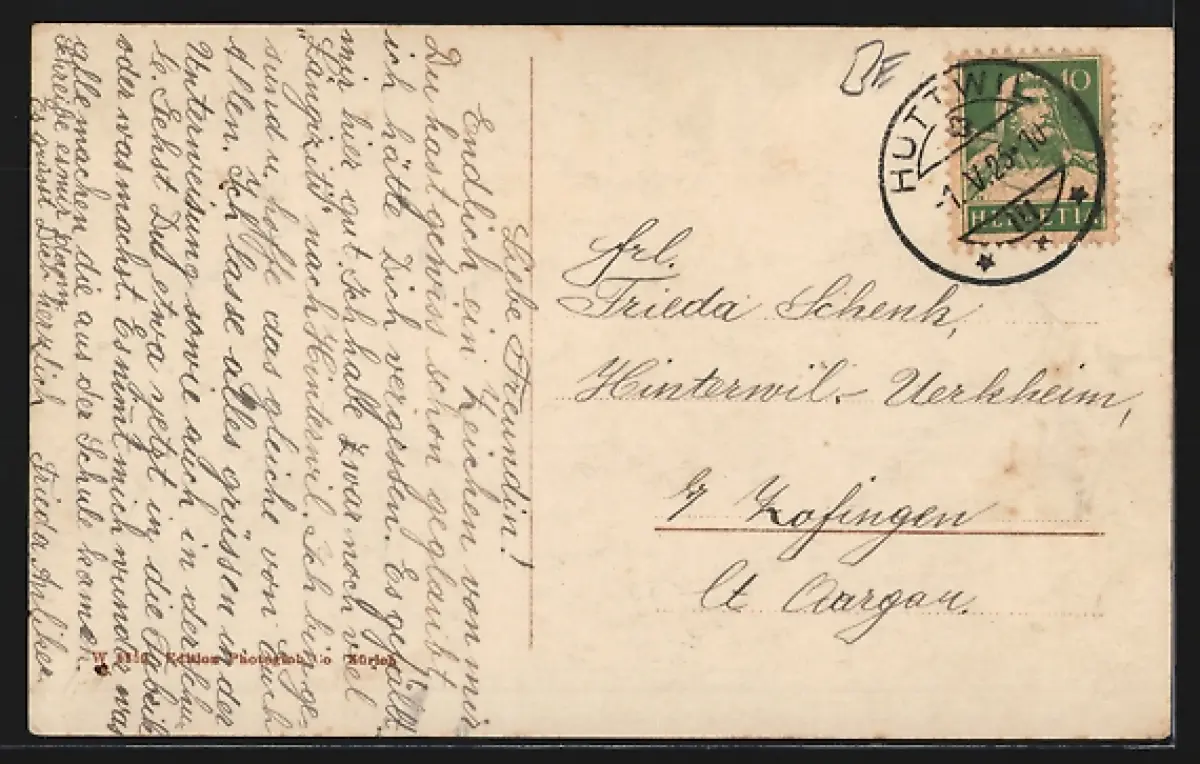 Liebe Freundin!
Endlich ein Zeichen von mir
Du hast gewiss schon geglaubt
ich hätte Dich vergessen. Es gefällt
mir hier gut. Ich habe zwar noch viel
"Längizitt" nach Hinterwil. Ich bin ge-
sund u. hoffe das gleiche von Euch
Allen. Ich lasse alles grüssen in der
Unterweisung sowie auch in der
b. Gehst Du etwa jetzt in die Fabrik
oder was machst. Es nimmt mich wunder was
Alle machen die aus der Schule kamen.
Schreibe es mir dann.
Es grüsst Dich herzlich Frieda Anliker
W Edition Photoglob Co Zürich
HUTTWIL
-1.V.25-10
III
10
HELVETIA
BE
Frl.
Frieda Schenk,
Hinterwil.- Uerkheim,
b/ Zofingen
Ct Aargau.